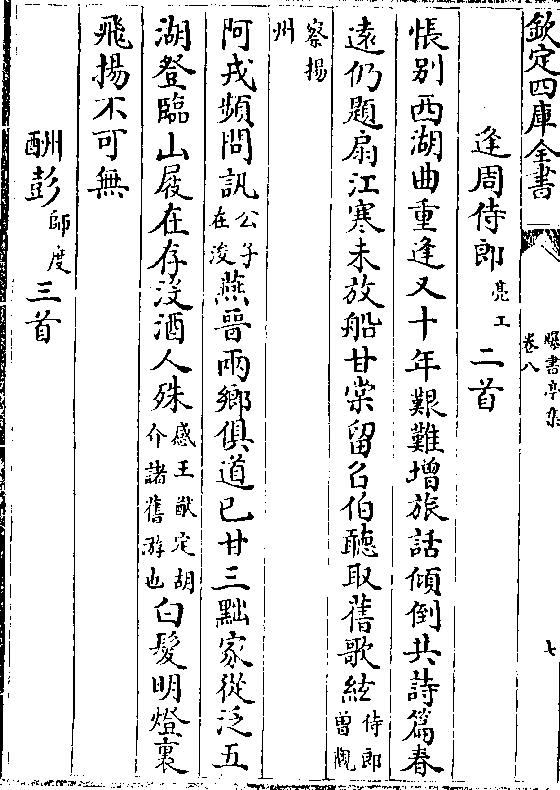 欽定四庫全書
曝書亭集
卷八
七
逢周侍郎亮工二首
悵别西湖曲重逢又十年艱難增旅話傾倒共詩篇春
遠仍題扇江寒未放船甘棠留召伯聽取舊歌絃侍郎曾觀
察揚州
阿戎頻問訊公子在浚燕晉兩鄉俱道已甘三黜家從泛五
湖登臨山屐在存没酒人殊感王猷定胡介諸舊游也白髮明燈裏
飛揚不可無
酬彭師度三首